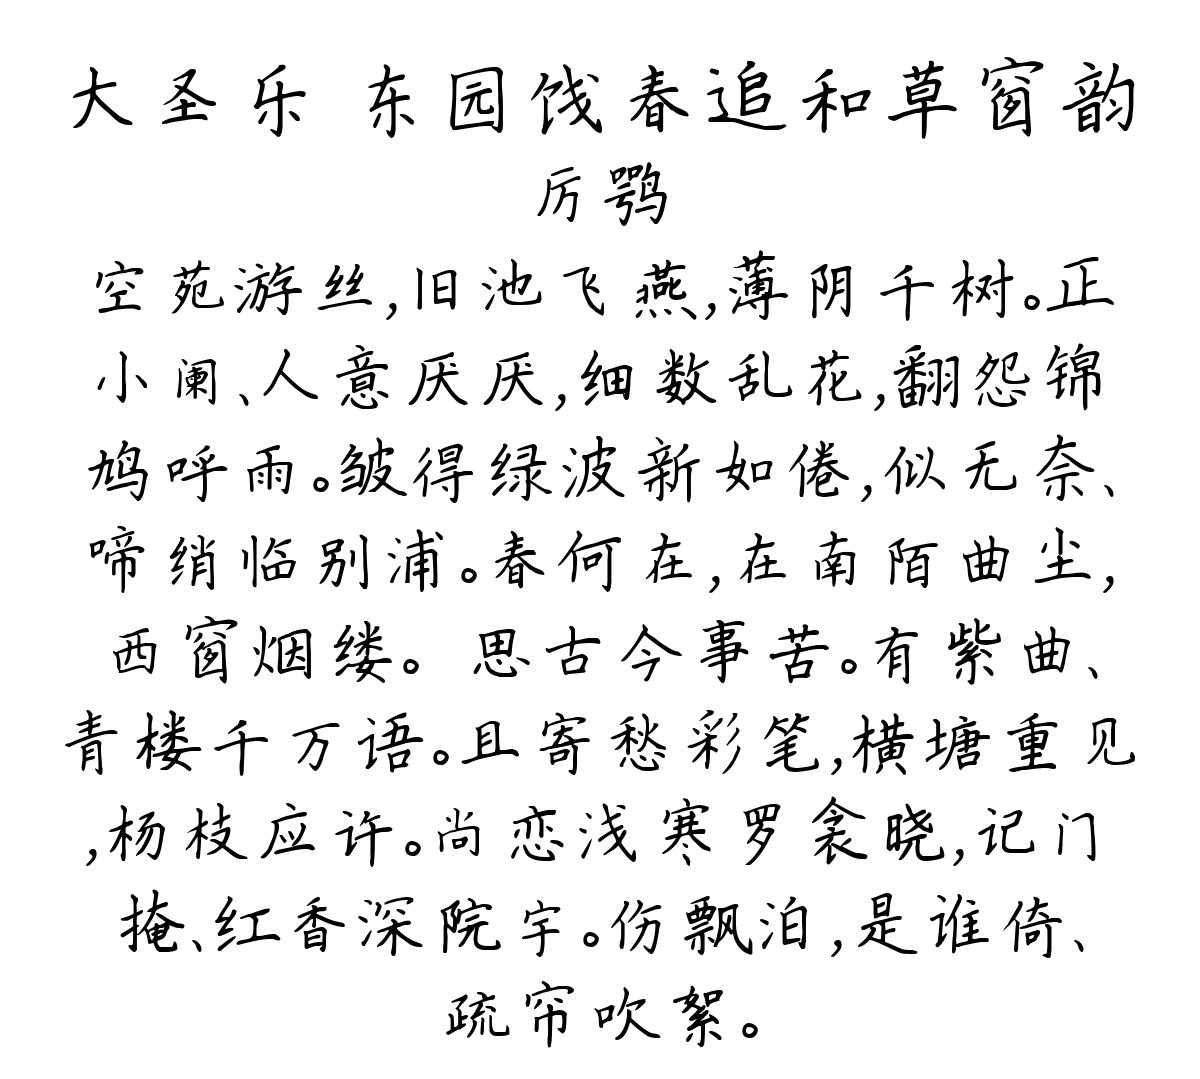 大圣乐 东园饯春追和草窗韵
厉鹗
空苑游丝,旧池飞燕,薄阴千树。正
小阑、人意厌厌,细数乱花,翻怨锦
鸠呼雨。皱得绿波新如倦,似无奈、
啼绡临别浦。春何在,在南陌曲尘,
西窗烟缕。 思古今事苦。有紫曲、
青楼千万语。且寄愁彩笔,横塘重见
,杨枝应许。尚恋浅寒罗衾晓,记门
掩、红香深院宇。伤飘泊,是谁倚、
疏帘吹絮。